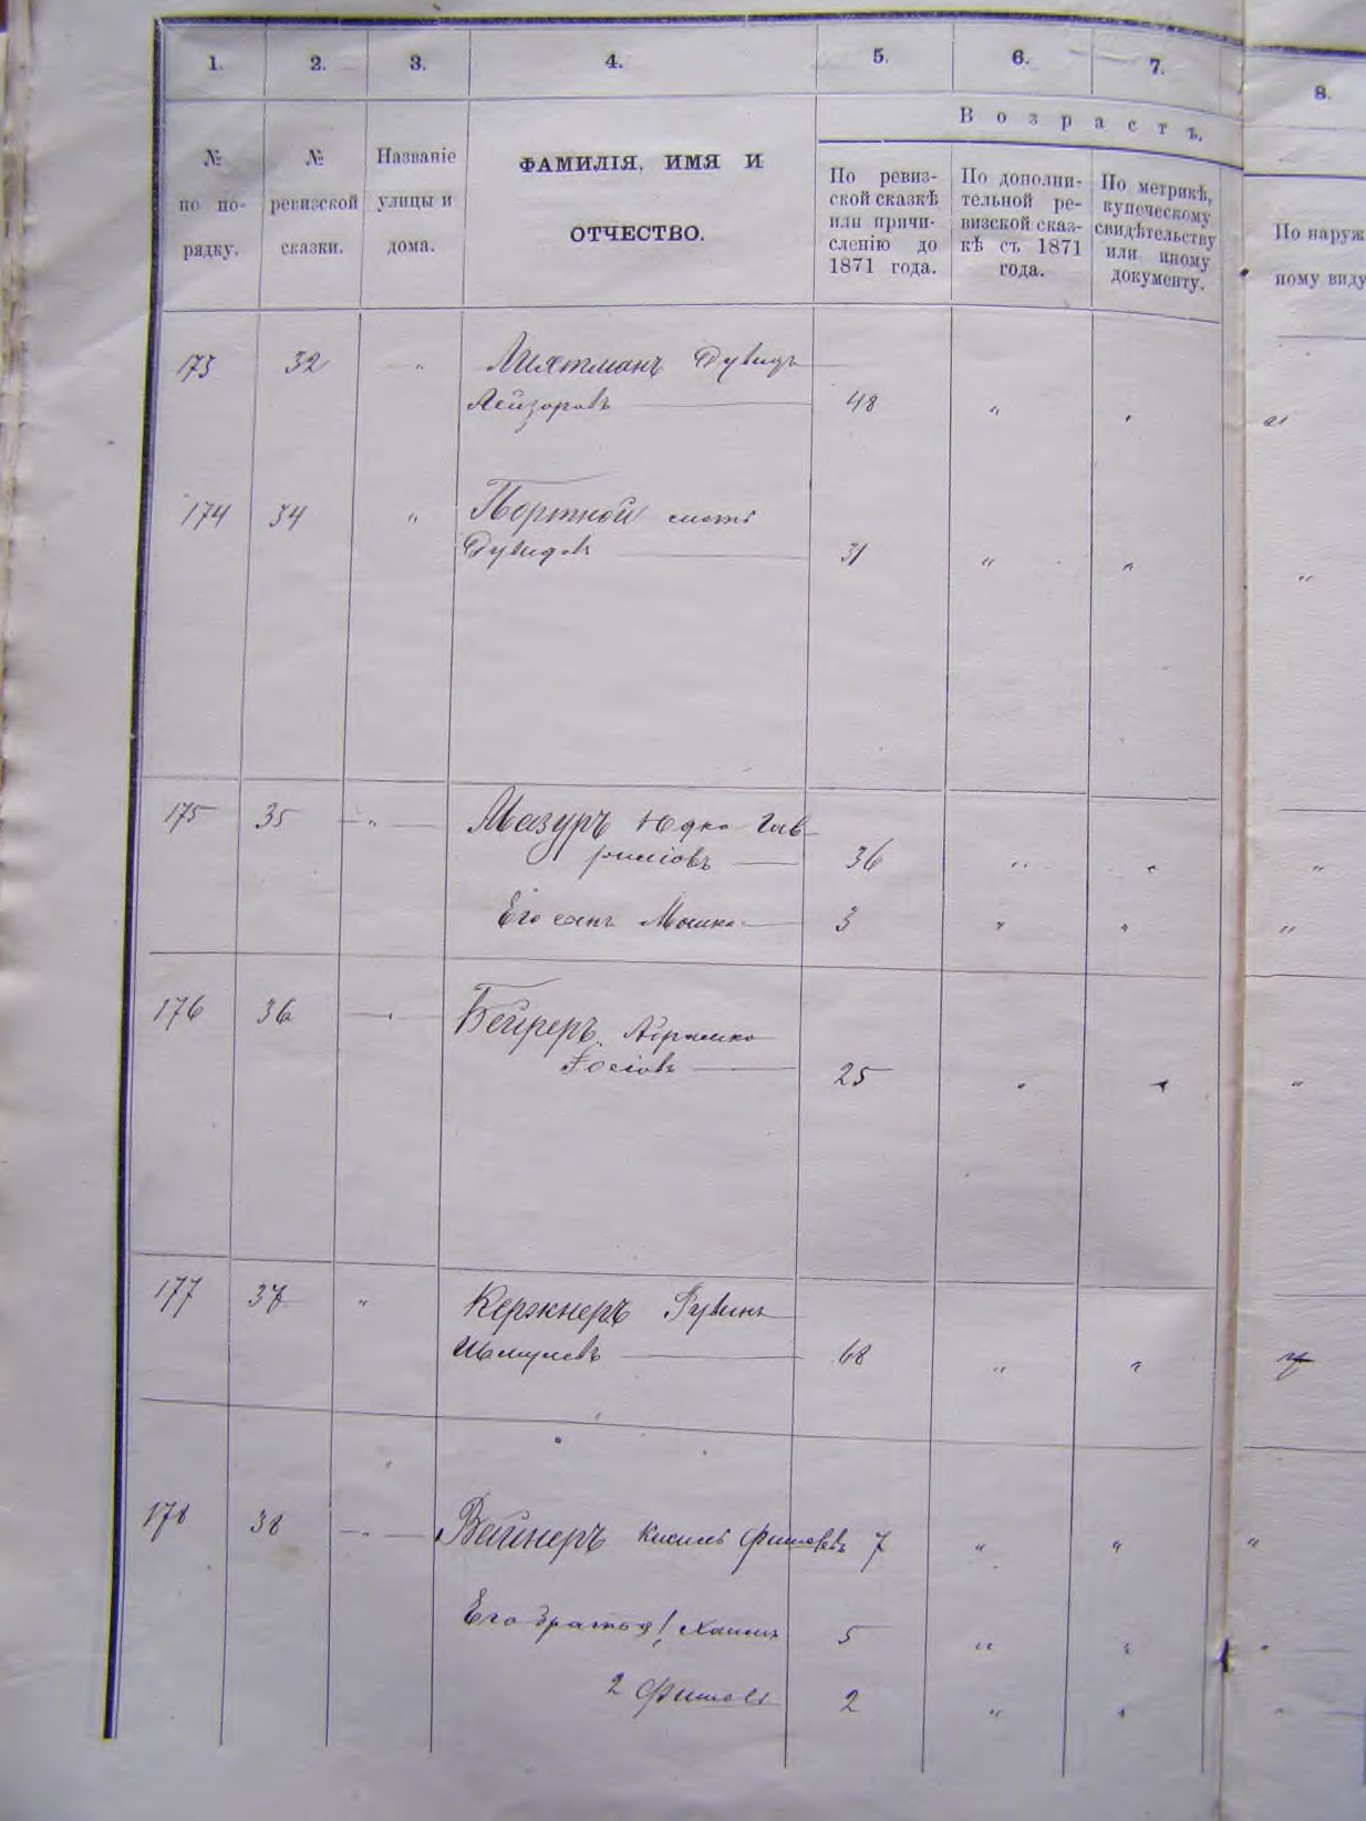 1. 2. 3. 4. 5. 6. 7. 8.
Возрастъ.
№ по по-рядку.
№ ревизской сказки.
Названіе улицы и дома.
ФАМИЛІЯ, ИМЯ И
ОТЧЕСТВО.
По ревиз-
ской сказкѣ
или причи-
сленію до
1871 года.
По дополни-
тельной ре-
визской сказ-
кѣ съ 1871
года.
По метрикѣ,
купеческому
свидѣтельству
или иному
документу.
По наруж
ному виду
173 32 " Лихтманъ Дувидъ
Лейзоровъ 48 " " "
174 34 " Портной
Дувидовъ 31 " " "
175 35 " Мазуръ Юдко Гав-
риловъ 36 " " "
Его сынъ Мошко 3 " " "
176 36 " Абрамко
Іосіовъ 25 " " "
177 37 " Кержнеръ Рувинъ
Шмулевъ 68 " " "
178 38 " Вейнеръ Кисиль Фишелевъ 7 " " "
Его братья 1 Хаимъ 5 " " "
2 Фишель 2 " " "